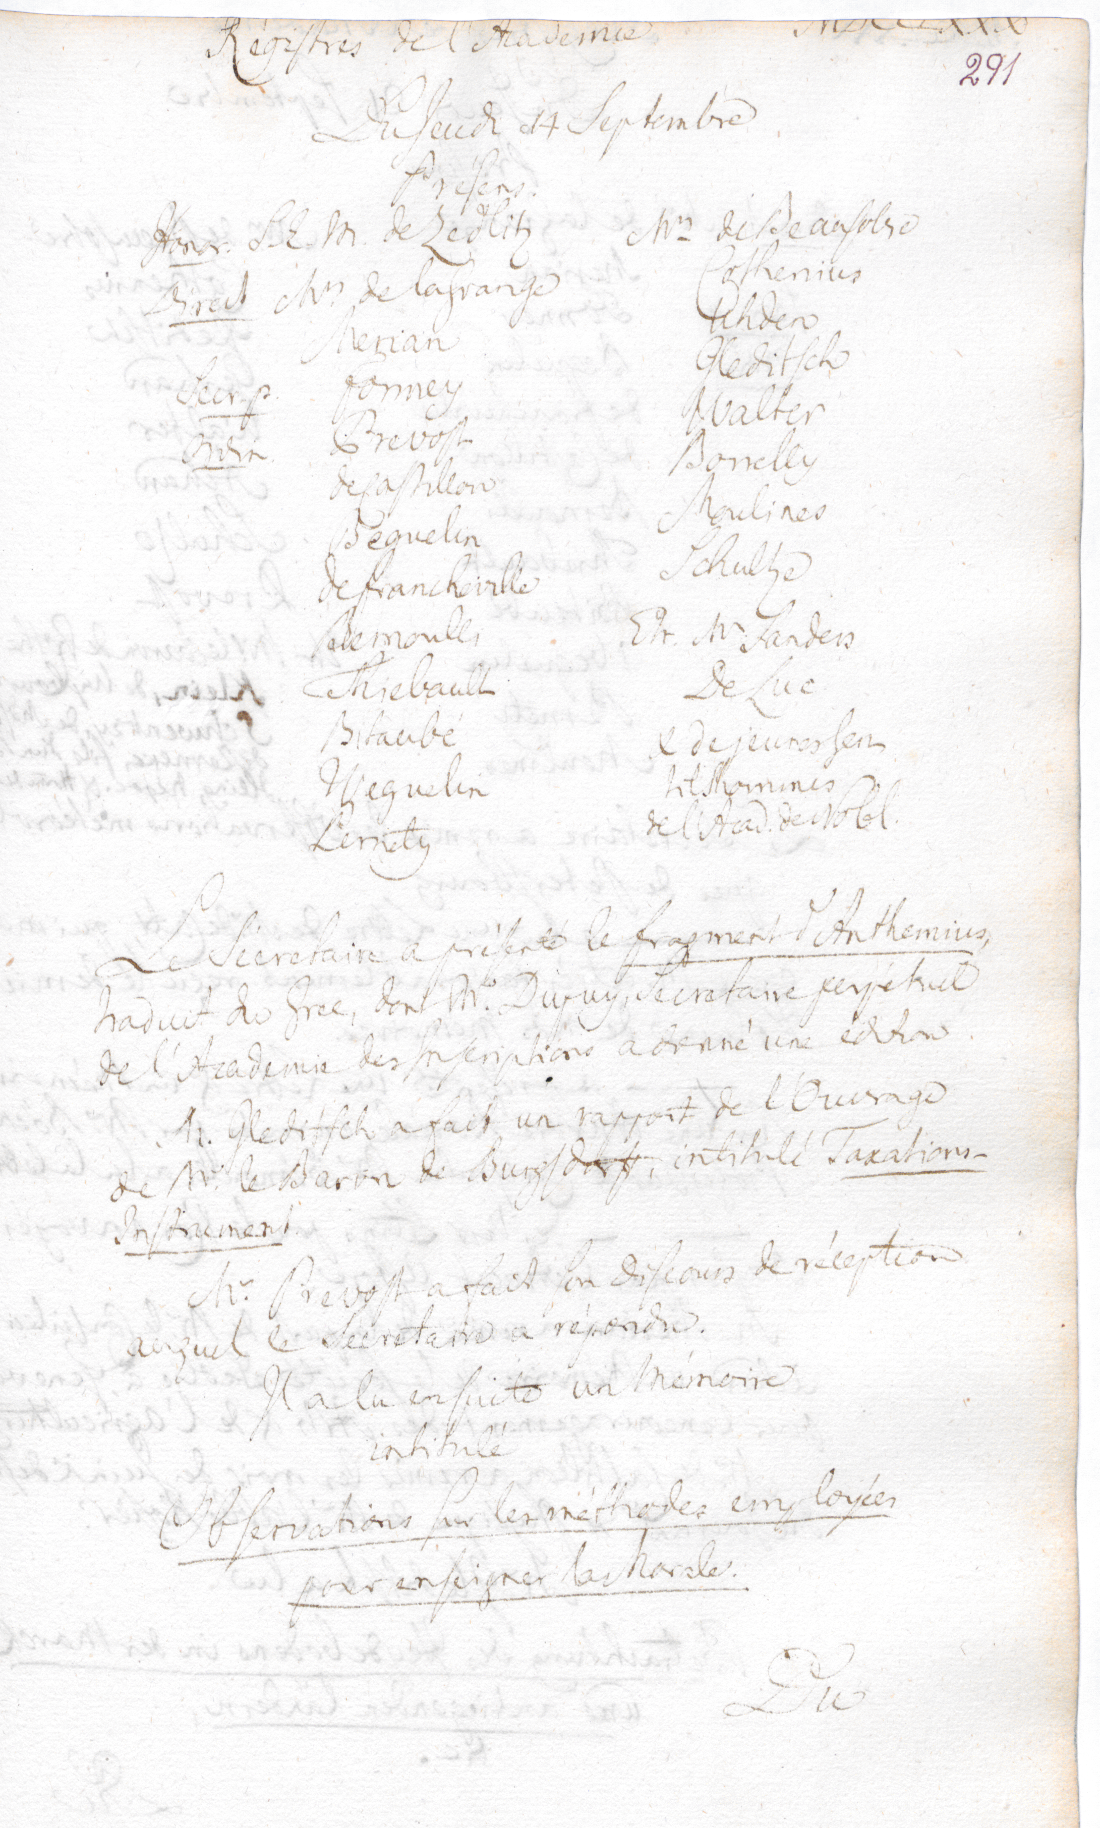 Régistres de l'Academie MDCCLXXX
291
Du Jeudi 14 Septembre
Présens.
Honor. S.E. Mr. de Zedlitz
Direct Mrs de la Grange
Merian
Secr. p. Formey
Ordin. Prevost
de Castillon
Beguelin
de Francheville
Bernoulli
Thiebault
Bitaubé
Weguelin
Pernety
Mrs de Beausobre
Cothenius
Gleditsch
Walter
Borrelly
Moulines
Schultze
Etr. Mrs Sanders
De Luc
& de jeunes Gen
tilshommes
de l'Acad. de Nobl.
Le Sécretaire a présenté le fragment d'Anthemius,
traduit du Grec, dont Mr. Dupuy, Secretaire perpétuel
de l'Académie des Inscriptions a donné une édition.
M. Gleditsch a fait un rapport de l'Ouvrage
de Mr. le Baron de Burgsdorff, intitulé Taxations-
Instrument.
Mr. Prevost a fait son discours de réception
auquel le Secretaire a répondu.
Il a lu ensuite un Mémoire
intitulé
Observations sur les méthodes employées
pour enseigner la Morale.
Du